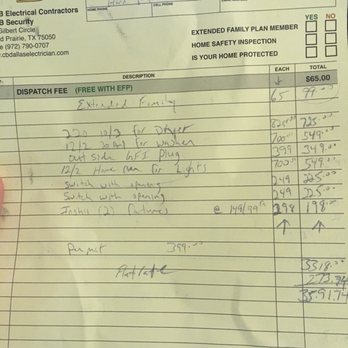 B Electrical Contractors
B Security
Gilbert Circle
d Prairie, TX 75050
e (972) 790-0707
w.cbdallaselectrician.com
CELL PHONE
YES NO
EXTENDED FAMILY PLAN MEMBER
HOME SAFETY INSPECTION
IS YOUR HOME PROTECTED
DESCRIPTION EACH TOTAL
DISPATCH FEE (FREE WITH EFP) $65.00
Extended Family 65 99.00
220 10/3 for Dryer 725.00
12/2 20 amp for washer 700 549.00
out side GFI Plug 399 349.00
12/2 Home Run for Lights 700 549.00
Switch with opening 249 225.00
Switch with opening 249 225.00
Install (2) fixtures @ 149/99 298 198.00
Permit 399.00
Flat rate 3318.00
273.74
3591.74